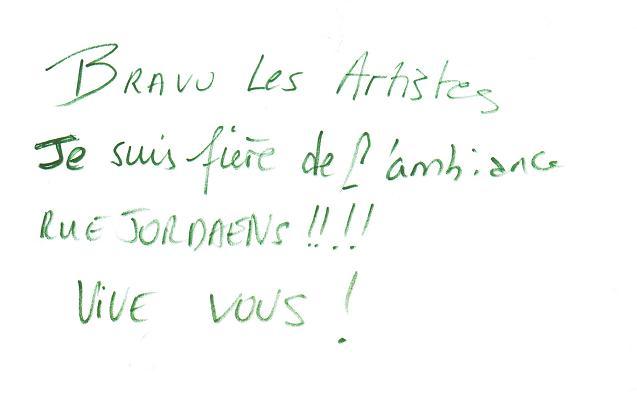 BRAVO Les Artistes
Je suis fière de l'ambiance
RUE JORDAENS !!!!
ViVE VOUS !